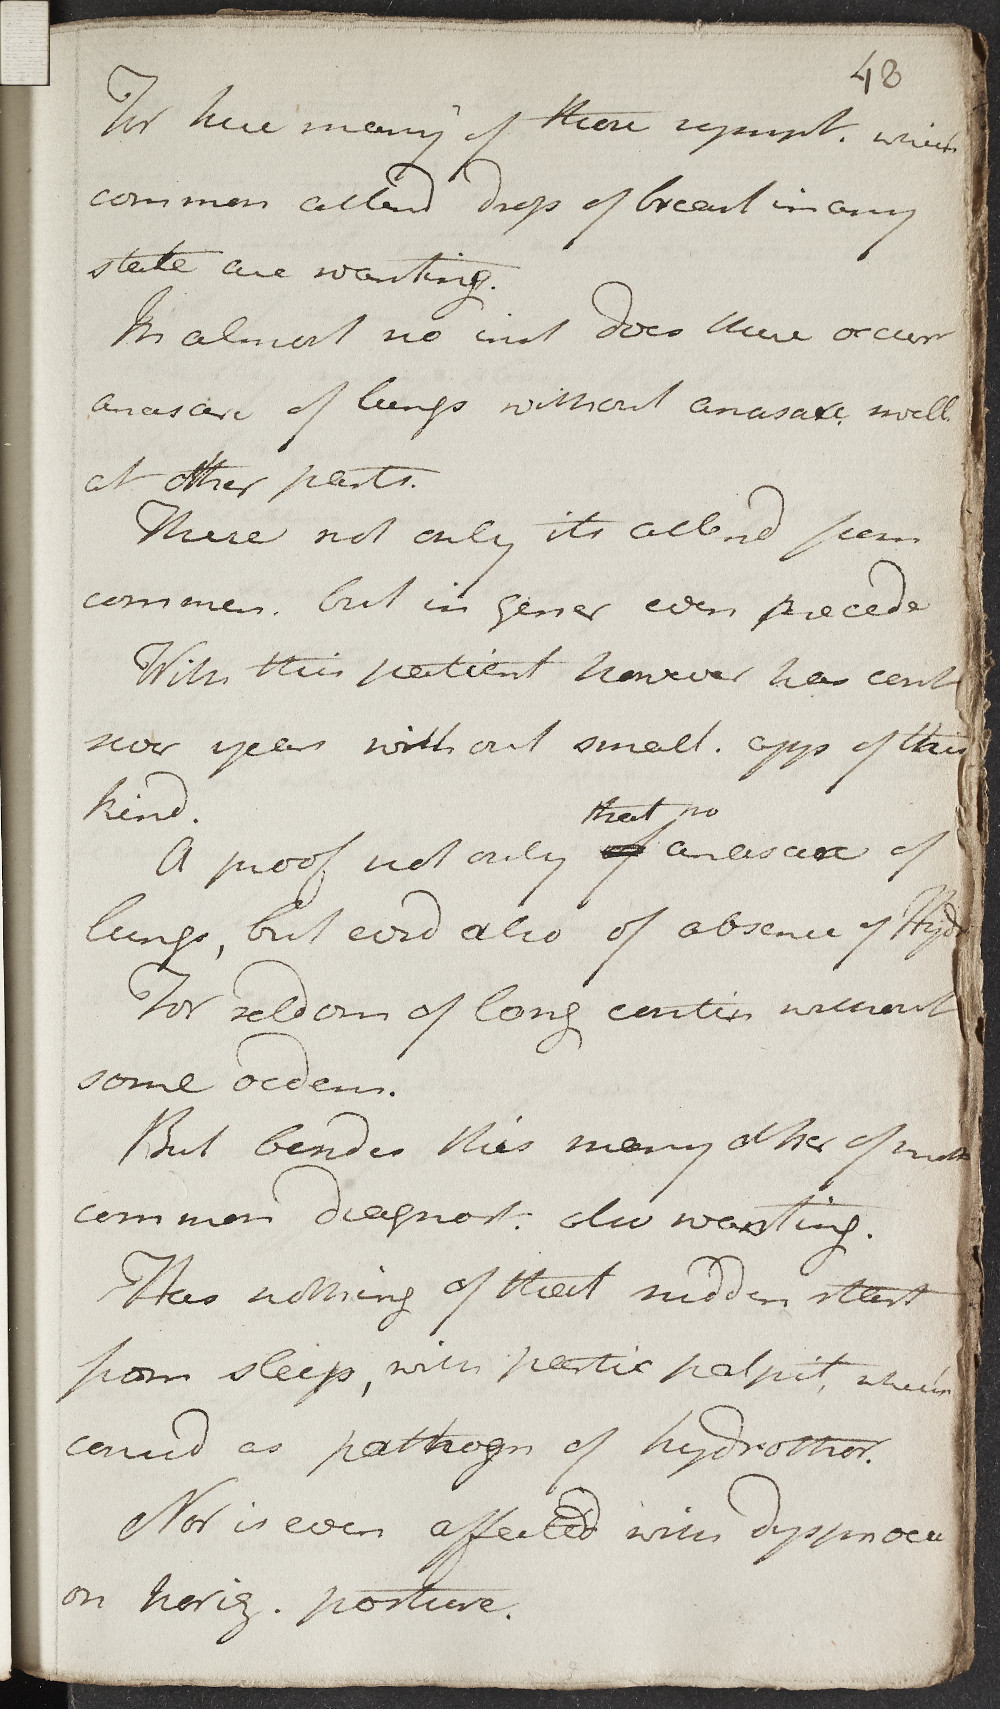 48
For here many of those sympt. which
common attend drops of breast in any
state are wanting.
In almost no inst does there occurr
anasarc of lungs without anasarc. swell.
at other parts.
These not only its attend from
commen. but in gener even precede
With this patient however has cont
now years without small. app of this
kind.
that no
A proof not only of anasarc of
lungs, but evid also of absence of Hydr
For seldom of long contin without
some oedem.
But besides this many other of most
common diagnost. also wanting.
Has nothing of that sudden start
from sleep, with partic palpit, which
consid as pathogn of hydrothor.
Nor is even affected with dyspnoea
on horiz. posture.